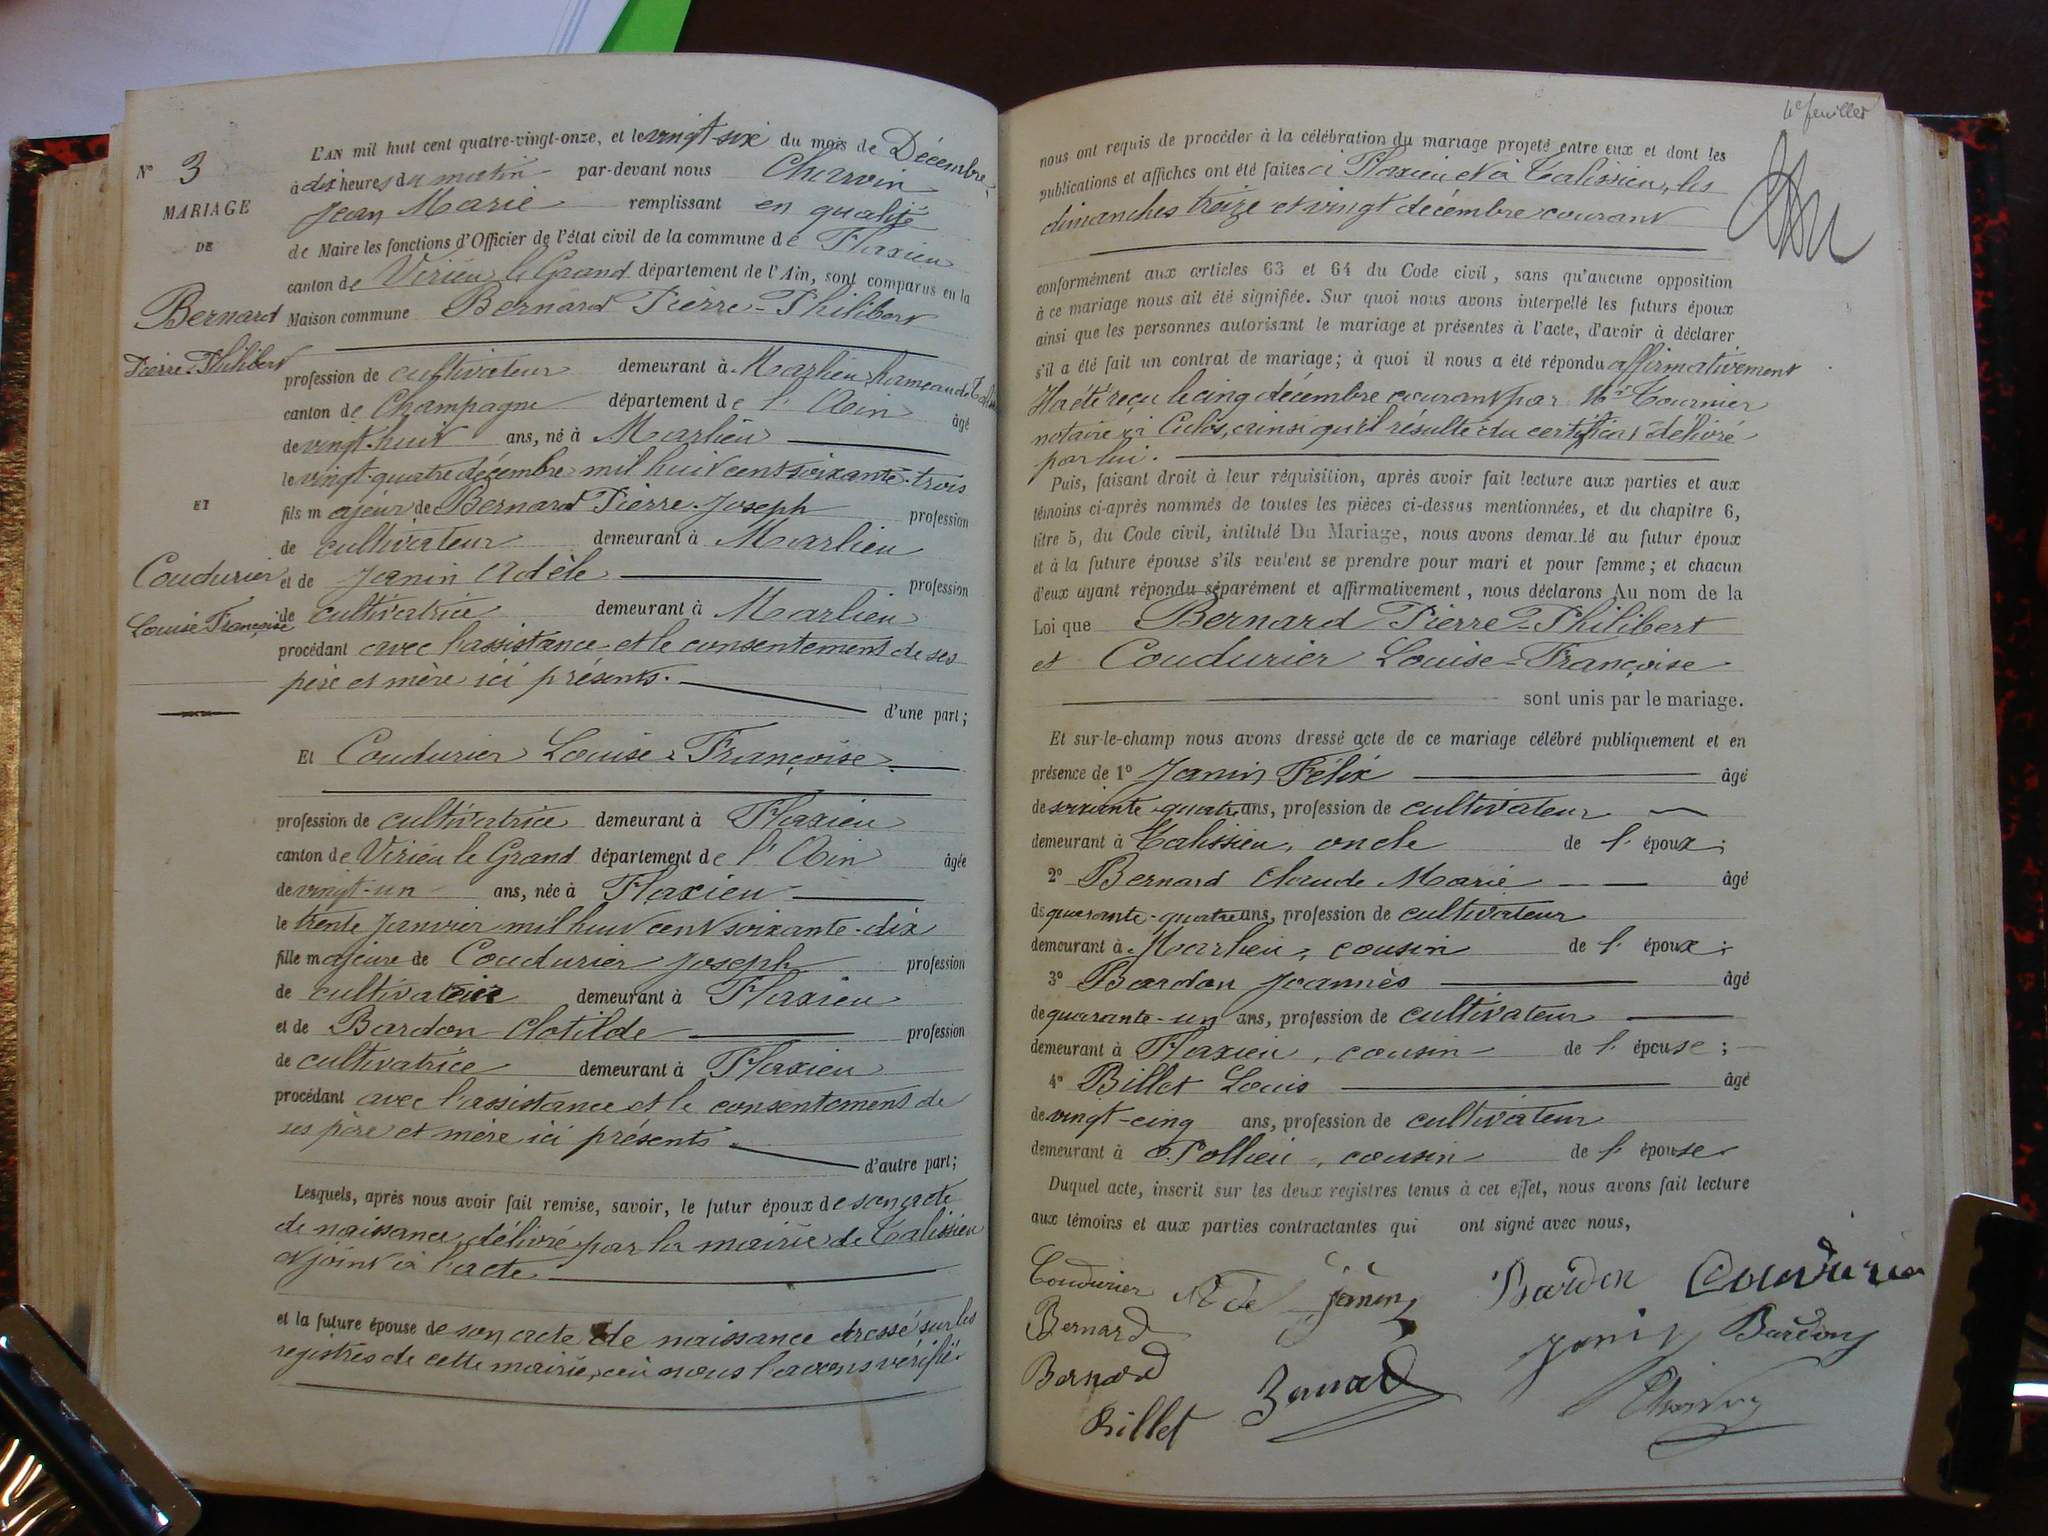 N° 3
MARIAGE
DE
Bernard
Pierre-Philibert
ET
Coudurier
Louise Françoise
L'AN mil huit cent quatre-vingt-onze, et le vingt-six du mois de Décembre,
à dix heures du matin par-devant nous Charvin
Jean Marie remplissant en qualité
de Maire les fonctions d'Officier de l'état civil de la commune de Flaxieu
canton de Virieu le Grand département de l'Ain, sont comparus en la
Maison commune Bernard Pierre-Philibert
profession de cultivateur demeurant à Marlieu hameau de
canton de Champagne département de l'Ain âgé
de vingt-huit ans, né à Marlieu
le vingt-quatre décembre mil huit cent soixante-trois
fils majeur de Bernard Pierre-Joseph profession
de cultivateur demeurant à Marlieu
et de Janin Adèle profession
de cultivatrice demeurant à Marlieu
procédant avec l'assistance et le consentement de ses
père et mère ici présents.
d'une part;
Et Coudurier Louise-Françoise
profession de cultivatrice demeurant à Flaxieu
canton de Virieu le Grand département de l'Ain âgée
de vingt-un ans, née à Flaxieu
le trente janvier mil huit cent soixante-dix
fille majeure de Coudurier Joseph profession
de cultivateur demeurant à Flaxieu
et de Bardon Clotilde profession
de cultivatrice demeurant à Flaxieu
procédant avec l'assistance et le consentement de
ses père et mère ici présents
d'autre part;
Lesquels, après nous avoir fait remise, savoir, le futur époux de son acte
de naissance délivré par la mairie de Talissieu
et joint à l'acte
et la future épouse de son acte de naissance dressé sur les
registres de cette mairie, où nous l'avons vérifié.
4e feuillet
nous ont requis de procéder à la célébration du mariage projeté entre eux et dont les
publications et affiches ont été faites à Flaxieu et à Talissieu, les
dimanches treize et vingt décembre courant
conformément aux articles 63 et 64 du Code civil, sans qu'aucune opposition
à ce mariage nous ait été signifiée. Sur quoi nous avons interpellé les futurs époux
ainsi que les personnes autorisant le mariage et présentes à l'acte, d'avoir à déclarer
s'il a été fait un contrat de mariage; à quoi il nous a été répondu affirmativement
Il a été reçu le cinq décembre courant par Me Tournier
notaire à Culoz, ainsi qu'il résulte du certificat délivré
par lui.
Puis, faisant droit à leur réquisition, après avoir fait lecture aux parties et aux
témoins ci-après nommés de toutes les pièces ci-dessus mentionnées, et du chapitre 6,
titre 5, du Code civil, intitulé Du Mariage, nous avons demandé au futur époux
et à la future épouse s'ils veulent se prendre pour mari et pour femme; et chacun
d'eux ayant répondu séparément et affirmativement, nous déclarons Au nom de la
Loi que Bernard Pierre-Philibert
et Coudurier Louise-Françoise
sont unis par le mariage.
Et sur-le-champ nous avons dressé acte de ce mariage célébré publiquement et en
présence de 1° Janin Félix âgé
de soixante-quatre ans, profession de cultivateur
demeurant à Talissieu, oncle de l'époux;
2° Bernard Claude Marie âgé
de quarante-quatre ans, profession de cultivateur
demeurant à Marlieu, cousin de l'époux;
3° Bardon Joannès âgé
de quarante-un ans, profession de cultivateur
demeurant à Flaxieu, cousin de l'épouse;
4° Billet Louis âgé
de vingt-cinq ans, profession de cultivateur
demeurant à Pollieu, cousin de l'épouse
Duquel acte, inscrit sur les deux registres tenus à cet effet, nous avons fait lecture
aux témoins et aux parties contractantes qui ont signé avec nous,
Coudurier Janin Bardon Coudurier
Bernard Janin Bardon
Bernard Bernard Charvin
Billet